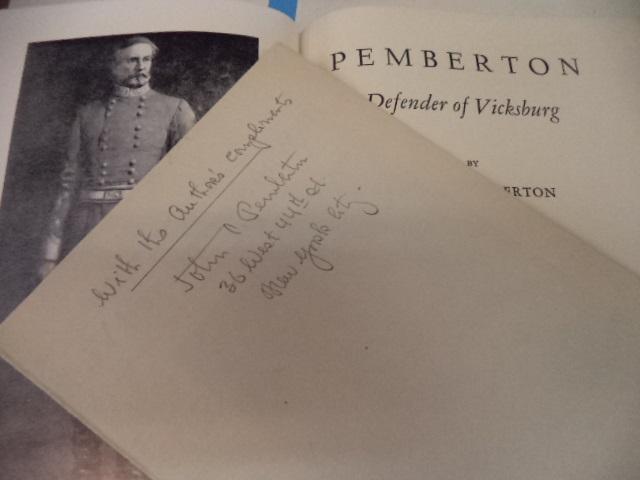 PEMBERTON
Defender of Vicksburg
BY
ERTON
With the Author's Compliments
John C Pemberton
36 West 44th St
New York City.